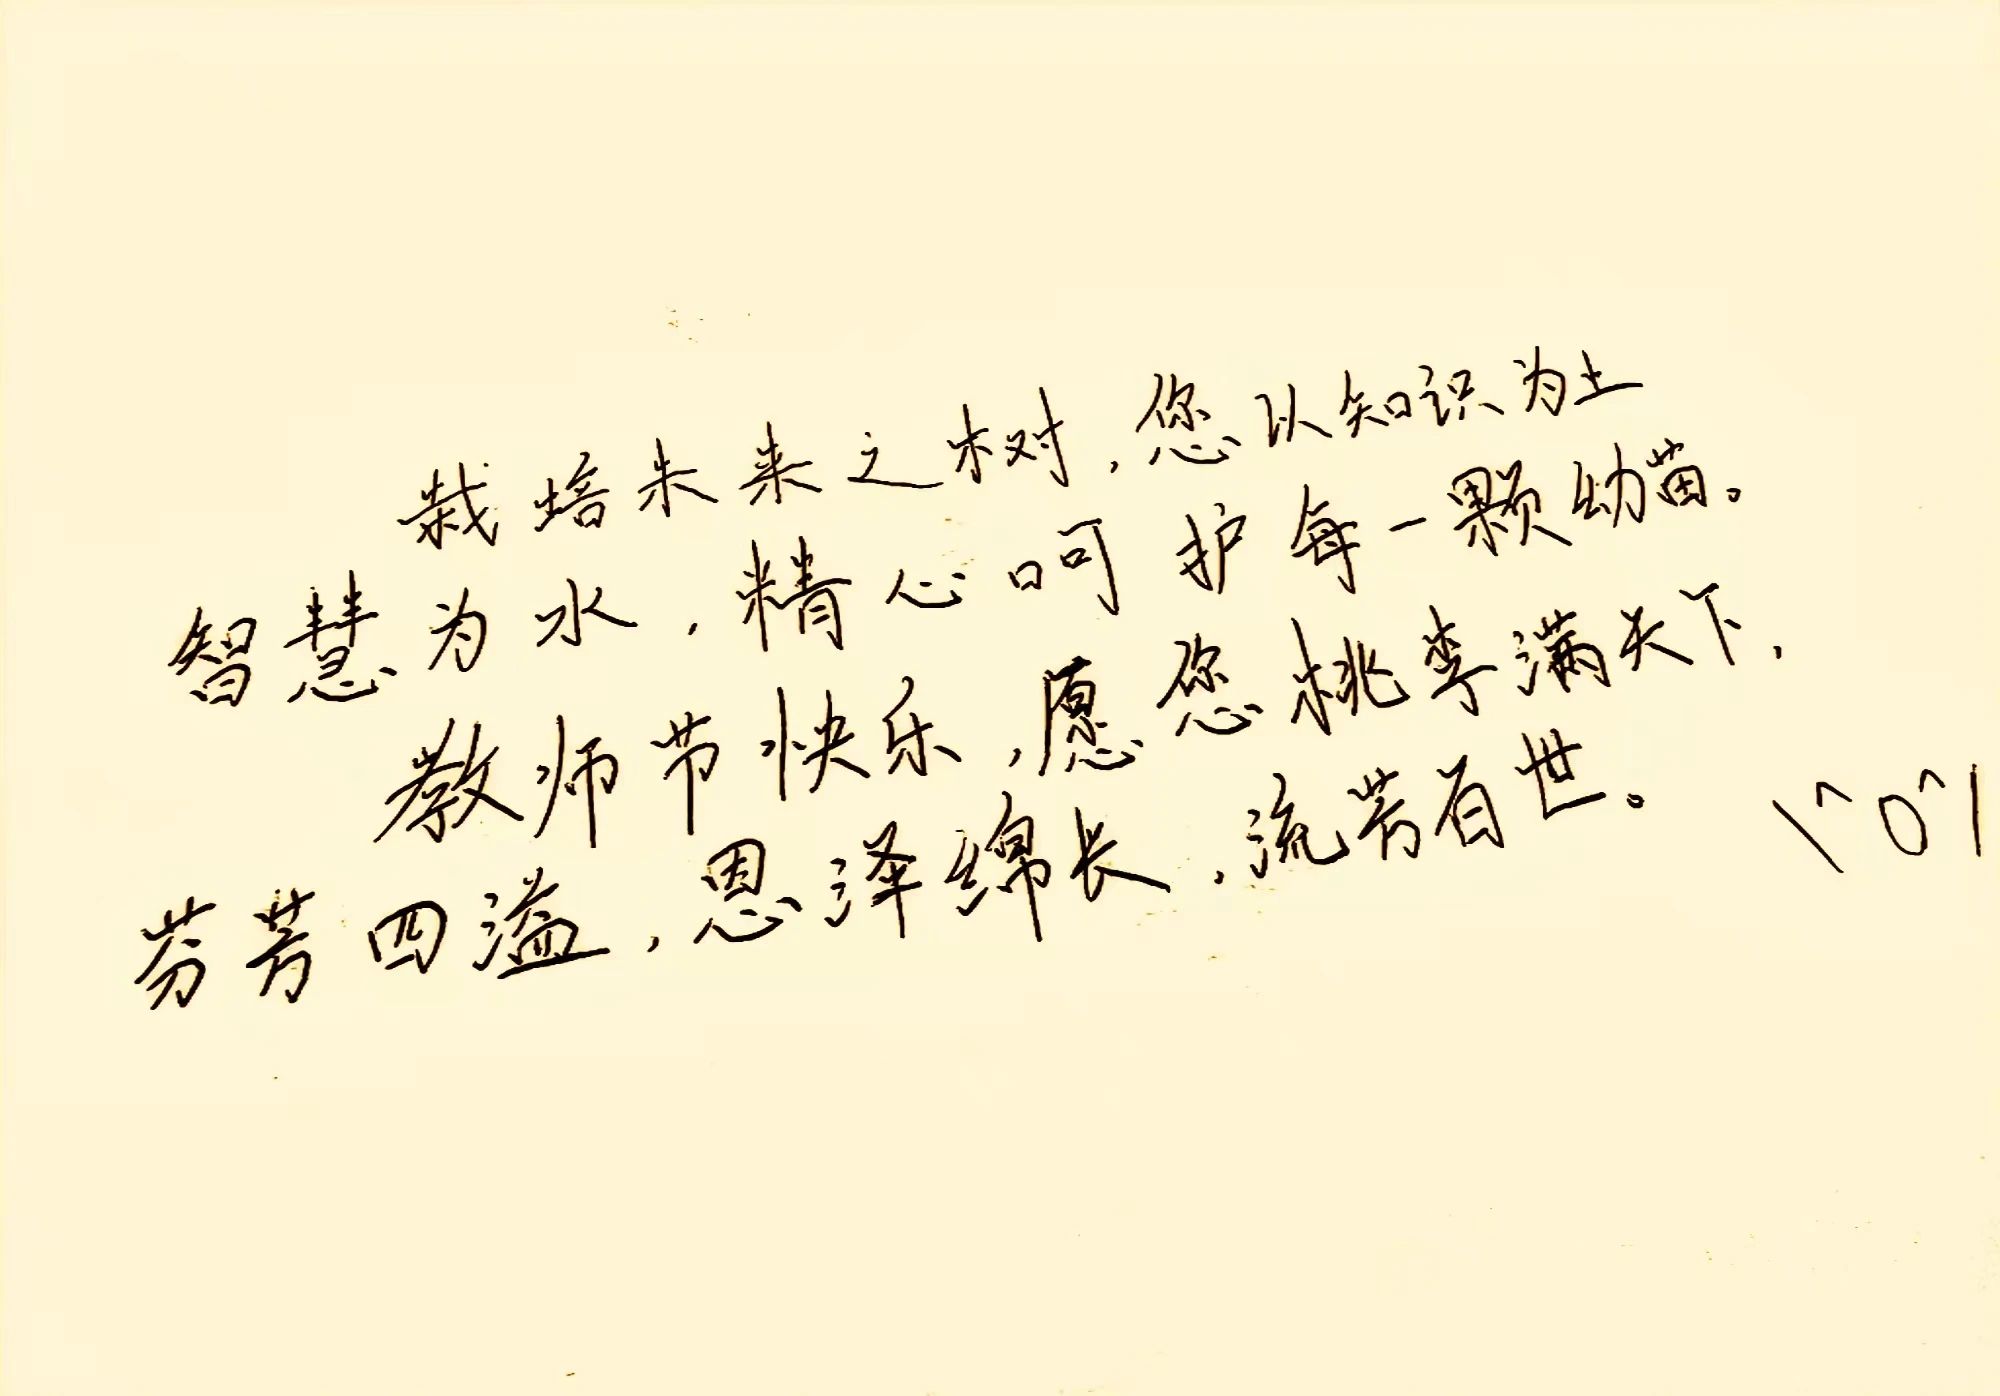 栽培未来之树,您以知识为土
智慧为水,精心呵护每一颗幼苗。
教师节快乐,愿您桃李满天下,
芬芳四溢,恩泽绵长,流芳百世。 \^o^|